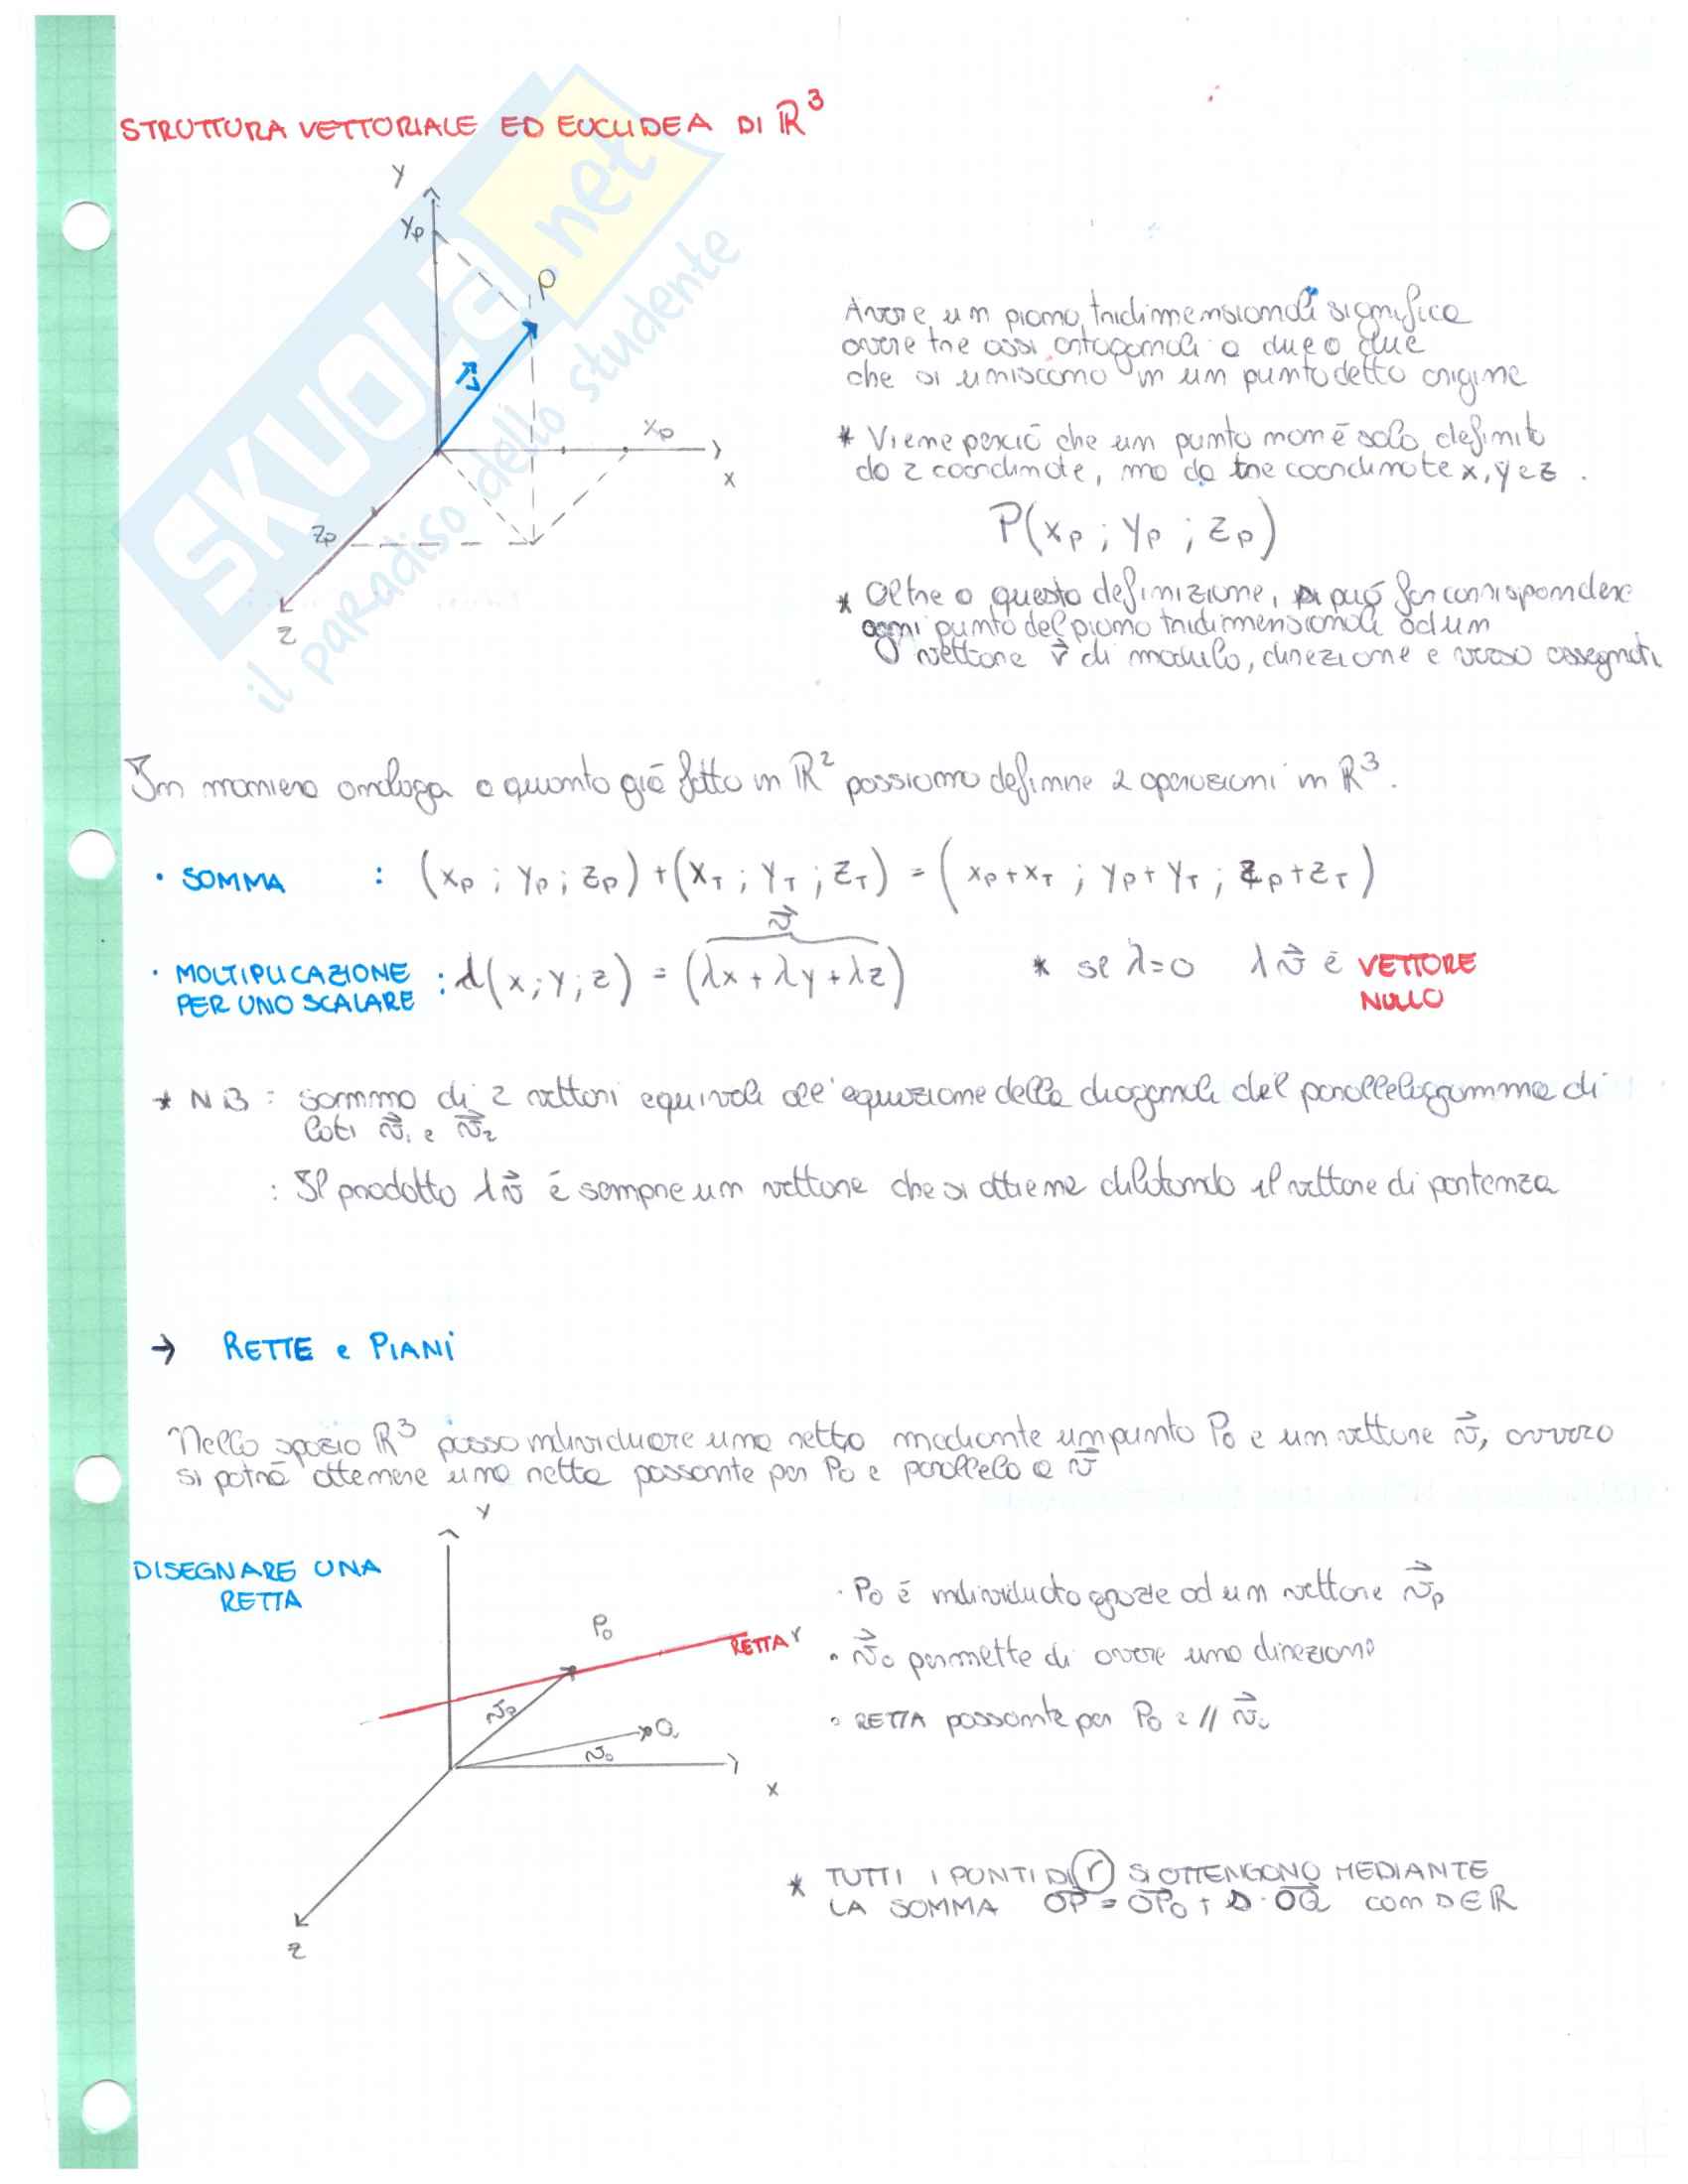 STRUTTURA VETTORIALE ED EUCLIDEA DI ℝ³
y
yp
P
v
xp
x
zp
z
SKUOLA.net
il paradiso dello studente
Avere un piano tridimensionale significa
avere tre assi ortogonali a due a due
che si uniscono in un punto detto origine
* Viene perciò che un punto non è solo definito
da 2 coordinate, ma da tre coordinate x, y e z .
P(xp ; yp ; zp)
* Oltre a questa definizione, si può far corrispondere
ogni punto del piano tridimensionale ad un
vettore v⃗ di modulo, direzione e verso assegnati
In maniera analoga a quanto già fatto in ℝ² possiamo definire 2 operazioni in ℝ³.
· SOMMA : (xp ; yp ; zp) + (xT ; yT ; zT) = ( xp+xT ; yp+yT ; zp+zT )
v⃗
· MOLTIPLICAZIONE : λ(x ; y ; z) = (λx + λy + λz) * se λ=0 λv⃗ è VETTORE
PER UNO SCALARE NULLO
* NB : somma di 2 vettori equivale all'equazione della diagonale del parallelogramma di
lati v⃗₁ e v⃗₂
: Il prodotto λv⃗ è sempre un vettore che si ottiene dilatando il vettore di partenza
→ RETTE e PIANI
Nello spazio ℝ³ posso individuare una retta mediante un punto P₀ e un vettore v⃗, ovvero
si potrà ottenere una retta passante per P₀ e parallela a v⃗
DISEGNARE UNA
RETTA
y
P₀
RETTA r
vp
Q
v₀
x
z
· P₀ è individuato grazie ad un vettore v⃗p
· v⃗₀ permette di avere una direzione
· RETTA passante per P₀ e // v⃗₀
* TUTTI I PUNTI DI r SI OTTENGONO MEDIANTE
LA SOMMA OP = OP₀ + s · OQ con s∈ℝ